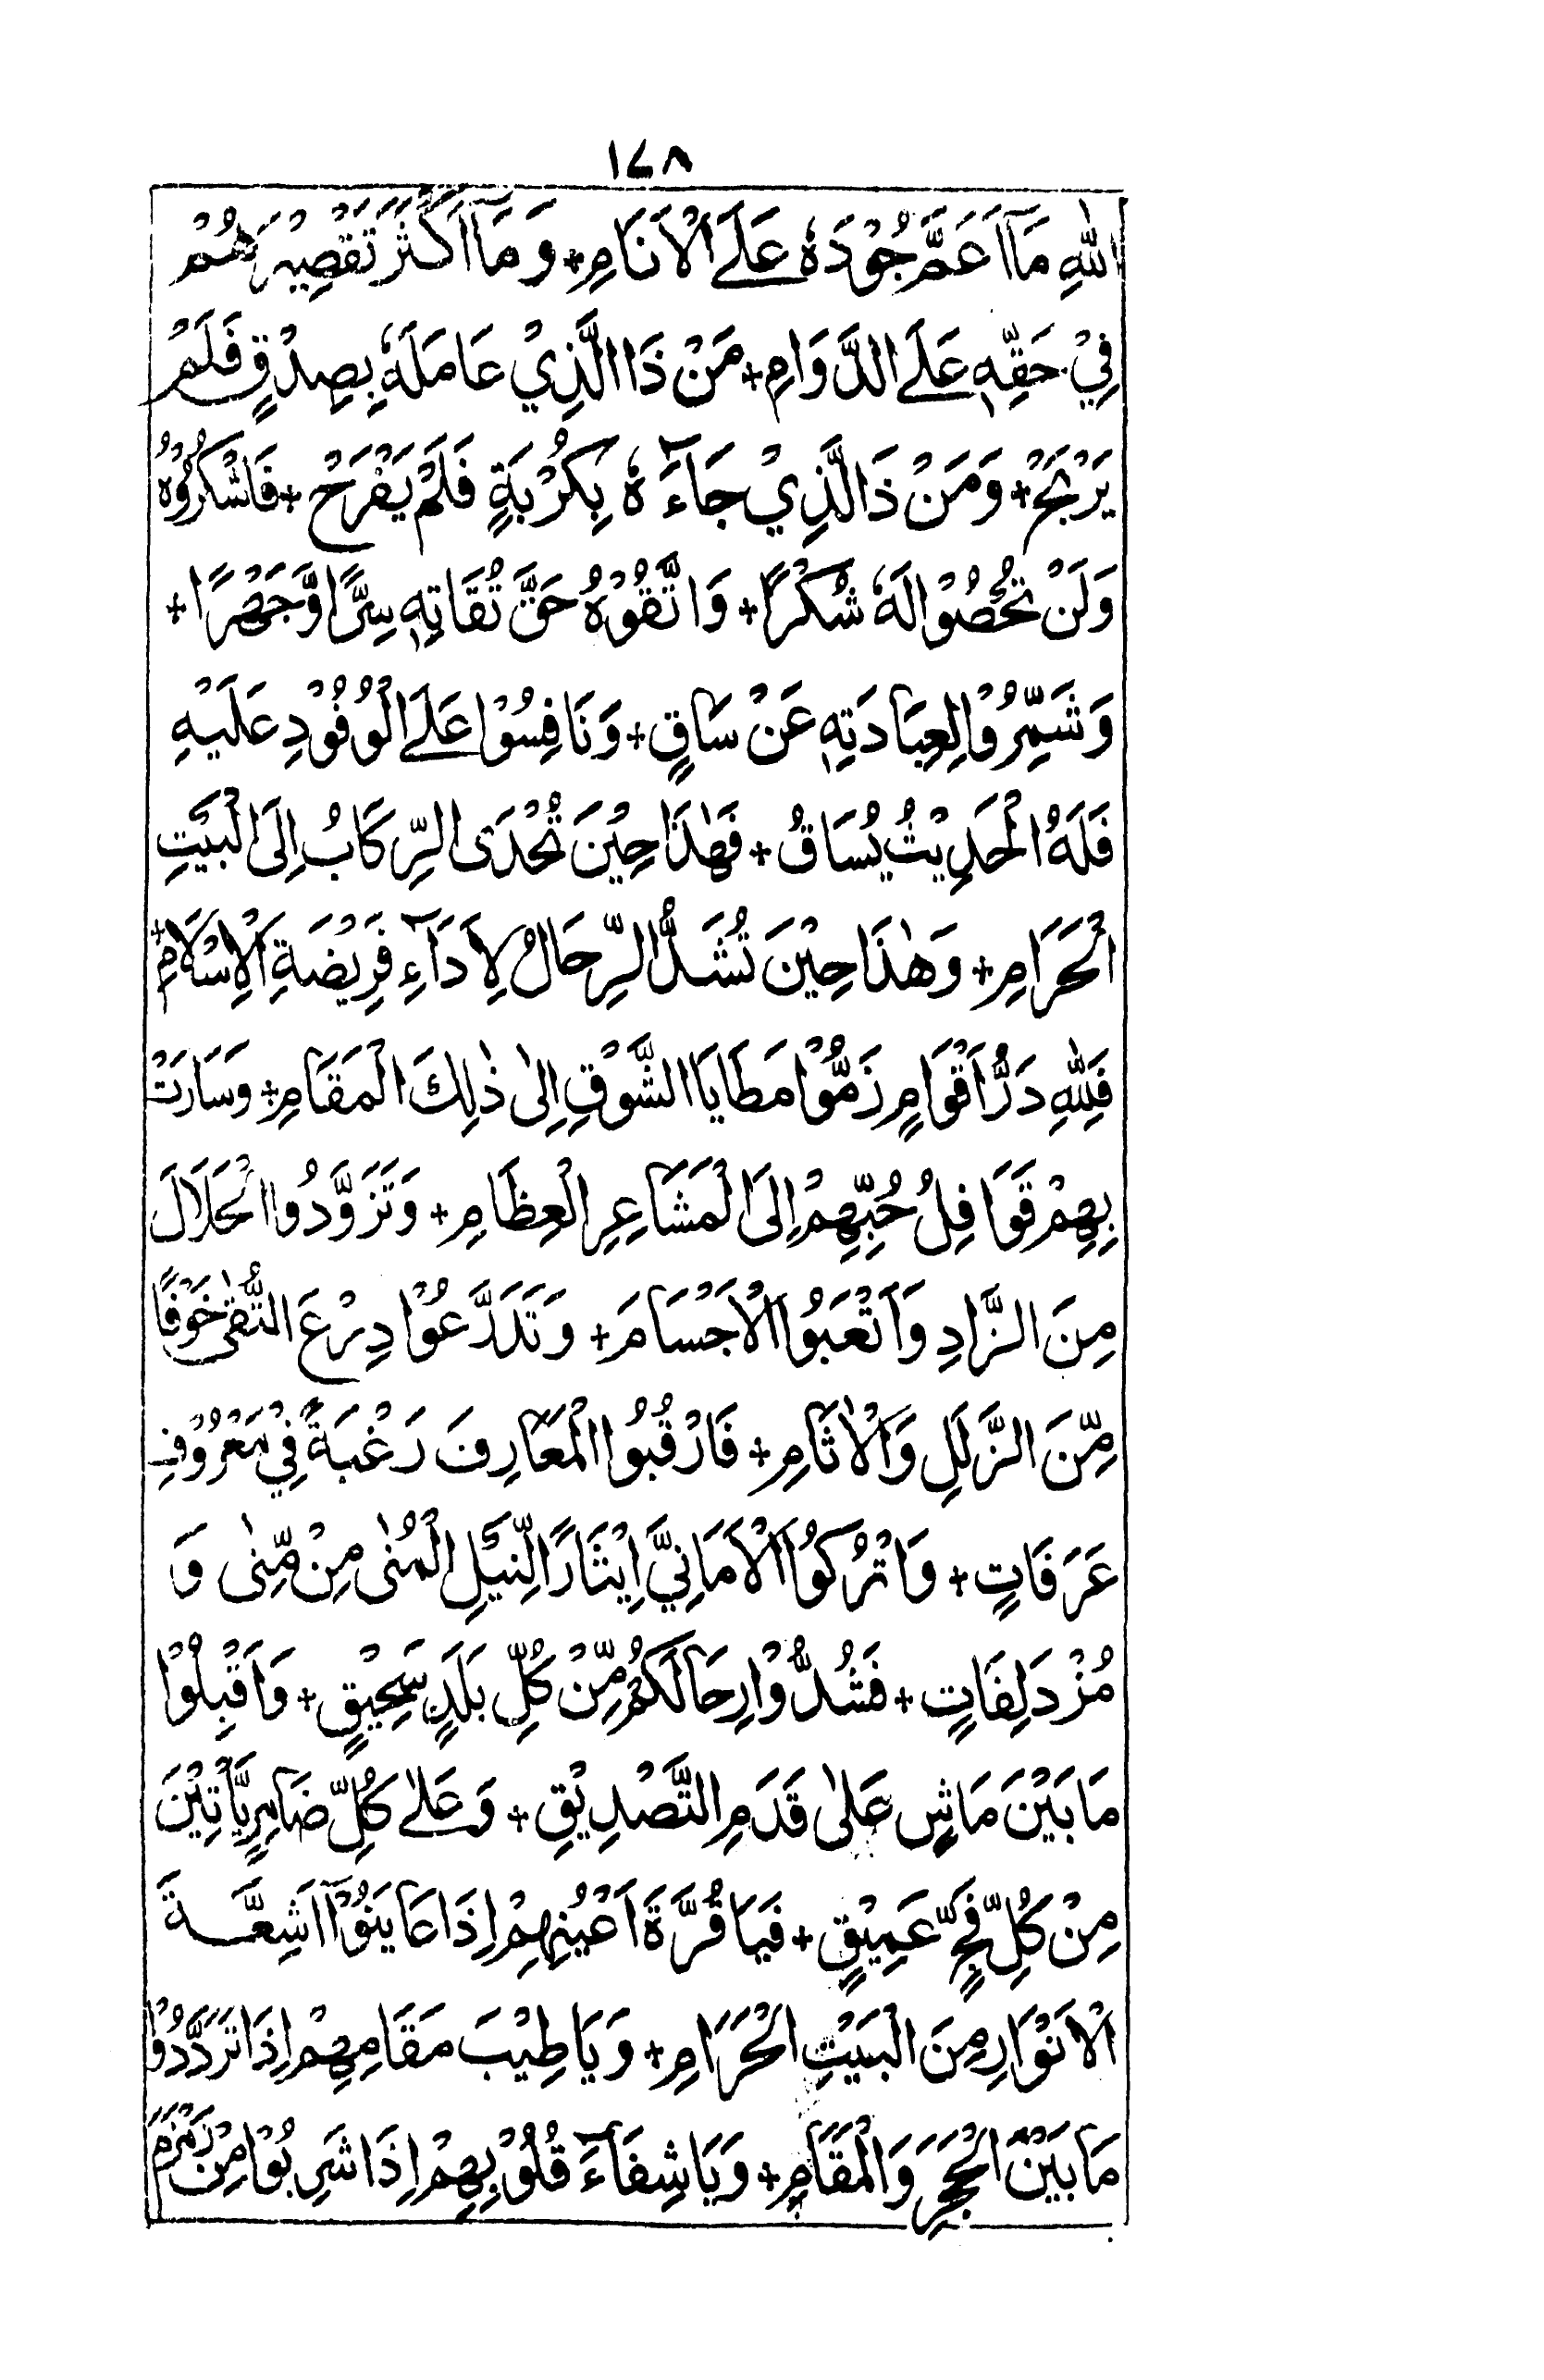 ١٤٨
اللهِ مَآ اَعَمَّ جُوْدَهٗ عَلَے الْاَنَامِ + وَمَآ اَكْثَرَ تَقْصِيْرَهُمْ
فِيْ حَقِّهٖ عَلَے الدَّوَامِ + مَنْ ذَا الَّذِيْ عَامَلَهٗ بِصِدْقٍ فَلَمْ
يَرْبَحْ + وَمَنْ ذَا لَّذِيْ جَآءَهٗ بِكُرْبَةٍ فَلَمْ يَفْرَحْ + فَاشْكُرُوْهُ
وَلَنْ تُحْصُوْا لَهٗ شُكْرًا + وَاتَّقُوْهُ حَقَّ تُقَاتِهٖ سِرًّا وَّجَهْرًا +
وَشَمِّرُوْا لِعِبَادَتِهٖ عَنْ سَاقٍ + وَنَافِسُوْا عَلَے الْوُفُوْدِ عَلَيْهِ
فَلَهُ الْحَدِيْثُ يُسَاقُ + فَهٰذَا حِيْنَ تُحْدَى الرِّكَابُ اِلَى الْبَيْتِ
الْحَرَامِ + وَهٰذَا حِيْنَ تُشَدُّ الرِّحَالُ لِاَدَآءِ فَرِيْضَةِ الْاِسْلَامِ +
فَلِلّٰهِ دَرُّ اَقْوَامٍ زَمُّوْا مَطَايَا الشَّوْقِ اِلىٰ ذٰلِكَ الْمَقَامِ + وَسَارَتْ
بِهِمْ قَوَافِلُ حُبِّهِمْ اِلَى الْمَشَاعِرِ الْعِظَامِ + وَتَزَوَّدُوا الْحَلَالَ
مِنَ الزَّادِ وَاَتْعَبُوا الْاَجْسَامَ + وَتَدَرَّعُوْا دِرْعَ التُّقٰى خَوْفًا
مِّنَ الزَّلَلِ وَالْاٰثَامِ + فَارْقُبُوا الْمَعَارِفَ رَغْبَةً فِيْ مَعْرُوْفِ
عَرَفَاتٍ + وَاتْرُكُوا الْاَمَانِيَّ اِيْثَارًا لِّنَيْلِ الْمُنٰى مِنْ مِّنٰى وَ
مُزْدَلِفَاتٍ + فَشُدُّوْا رِحَالَكُمْ مِّنْ كُلِّ بَلَدٍ سَحِيْقٍ + وَاَقْبِلُوْا
مَا بَيْنَ مَاشٍ عَلىٰ قَدَمِ التَّصْدِيْقِ + وَعَلٰے كُلِّ ضَامِرٍ يَّاْتِيْنَ
مِنْ كُلِّ فَجٍّ عَمِيْقٍ + فَيَا قُرَّةَ اَعْيُنِهِمْ اِذَا عَايَنُوْآ اَشِعَّةَ
الْاَنْوَارِ مِنَ الْبَيْتِ الْحَرَامِ + وَيَا طِيْبَ مَقَامِهِمْ اِذَا تَرَدَّدُوْا
مَا بَيْنَ الْحَجَرِ وَالْمَقَامِ + وَيَا شِفَآءَ قُلُوْبِهِمْ اِذَا شَرِبُوْا مِنْ زَمْزَمَ